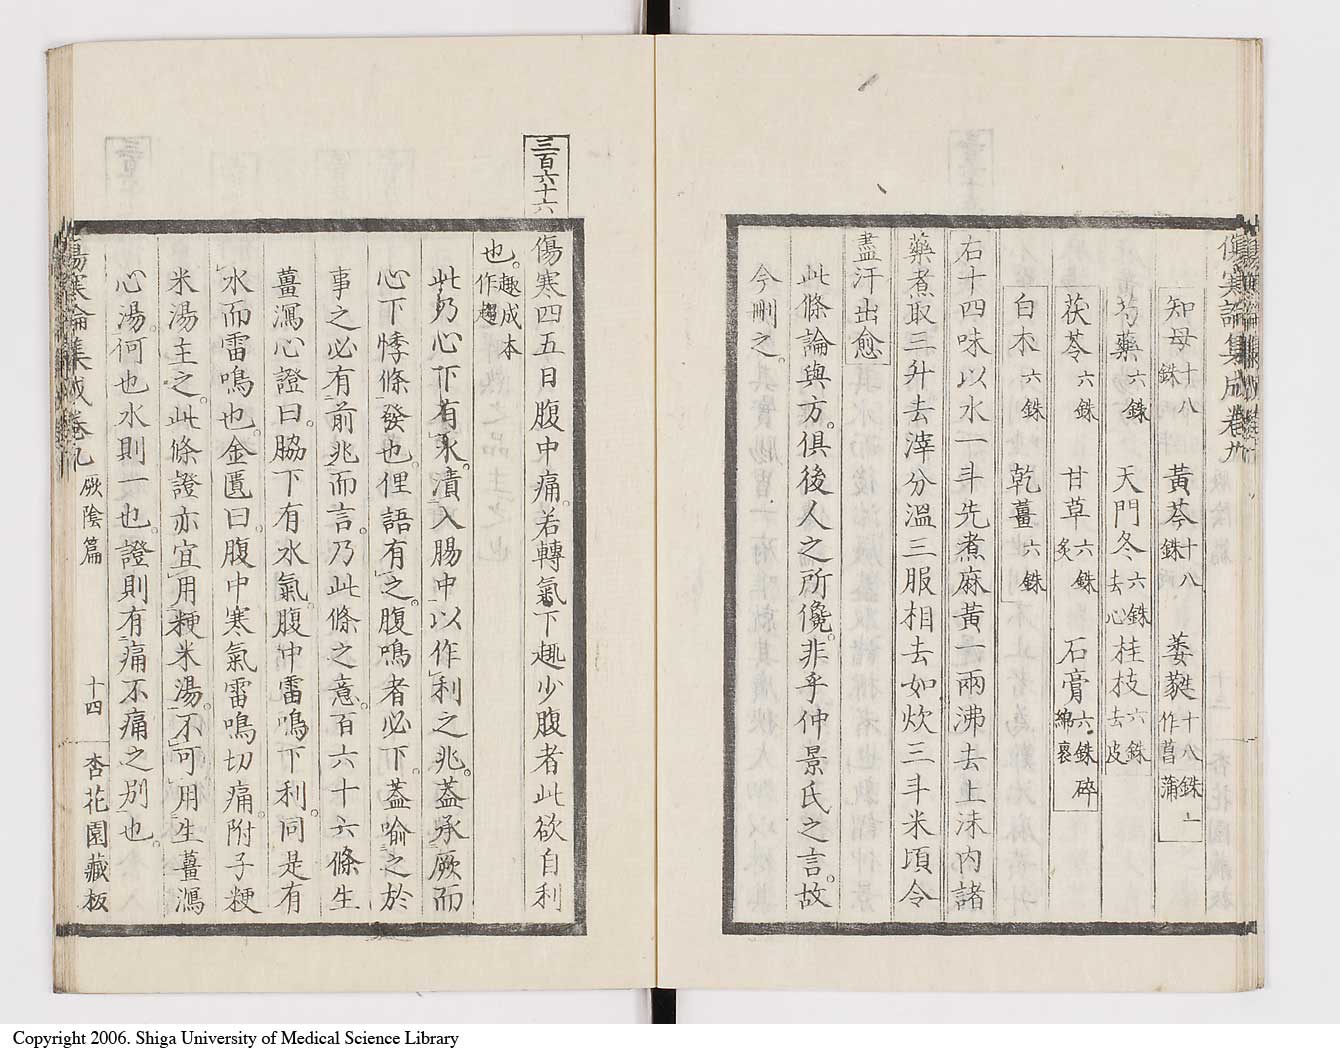 傷寒論集成卷九
知母十八銖 黃芩十八銖 萎蕤十八銖一作菖蒲
芍藥六銖 天門冬六銖去心 桂枝六銖去皮
茯苓六銖 甘草六銖炙 石膏六銖碎綿裹
白朮六銖 乾薑六銖
右十四味以水一斗先煮麻黃一兩沸去上沫內諸
藥煮取三升去滓分溫三服相去如炊三斗米頃令
盡汗出愈
此條論與方。俱後人之所儳。非乎仲景氏之言。故
今刪之。
三百六十六
傷寒四五日腹中痛。若轉氣下趣少腹者此欲自利
也。趣成本作趨
此乃心下有水。漬入腸中。以作利之兆。蓋承厥而
心下悸條發也。俚語有之。腹鳴者必下。蓋喻之於
事之必有前兆而言。乃此條之意。百六十六條生
薑瀉心證曰。脇下有水氣。腹中雷鳴下利。同是有
水而雷鳴也。金匱曰。腹中寒氣雷鳴切痛附子粳
米湯主之。此條證亦宜用粳米湯。不可用生薑瀉
心湯。何也水則一也。證則有痛不痛之別也。
傷寒論集成卷九 厥陰篇 十四 杏花園藏板
Copyright 2006. Shiga University of Medical Science Library